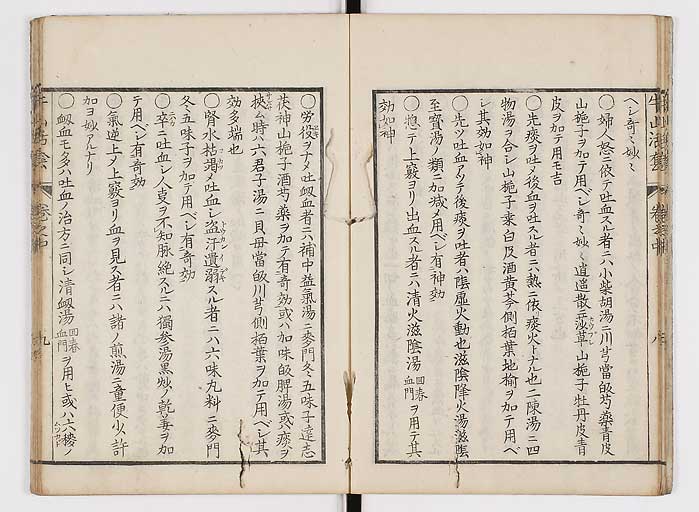 ヘシ奇々妙々
〇婦人怒ニ依テ吐血スル者ニハ小柴胡湯ニ川芎當皈芍藥青皮
山梔子ヲ加テ用ベシ奇々妙々逍遥散ニ草山梔子牡丹皮青
皮ヲ加テ用モ吉
〇先痰ヲ吐メ後血ヲ吐スル者ニハ熱ニ依痰火トナル也二陳湯ニ四
物湯ヲ合シ山梔子東白芨酒黄芩側栢葉地榆ヲ加テ用ベ
シ其効如神
〇先ツ吐血アツテ後痰ヲ吐者ハ陰虚火動也滋陰降火湯滋陰
至寳湯ノ類ニ加減メ用ベシ有神効
〇惣テ上竅ヨリ出血スル者ニハ清火滋陰湯 回春血門 ヲ用テ其
効如神
牛山活套
卷之中
〇労役ヲナメ吐衂血者ニハ補中益氣湯ニ麥門冬五味子遠志
茯神山梔子酒芍藥ヲ加テ有奇効或ハ加味皈脾湯或ハ痰ヲ
挾ム時ハ六君子湯ニ貝母當皈川芎側栢葉ヲ加テ用ベシ其
効多端也
〇腎水枯竭メ吐血シ盗汗遺溺スル者ニハ六味丸料ニ麥門
冬五味子ヲ加テ用ベシ有奇効
〇卒ニ吐血シ人叓ヲ不知脉絶スルニハ獨参湯黒炒ノ乾姜ヲ加
テ用ベシ有奇効
〇氣逆上メ上竅ヨリ血ヲ見ス者ニハ諸ノ煎湯ニ童便少許
加ヨ妙アルナリ
〇衂血モ多ハ吐血ノ治方ニ同シ清衂湯 回春血門 ヲ用ヒ或ハ六
九